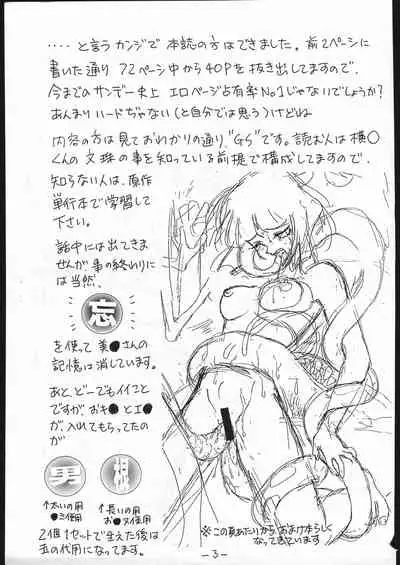 ‥‥と言うカンジで本誌の方はできました。前2ページに
書いた通り 72ページ中から40Pを抜き出してますので、
今までのサンデー史上 エロページ占有率No1じゃないでしょうか?
あんまりハードぢゃない(と自分では思う)けどね
内容の方は見ておわかりの通り、"GS"です。読むお人は横○
くんの文珠の事を知っている前提で構成してますので、
知らない人は、原作
単行本で学習して
下さい。
話中には出てきま
せんが、事の終わりに
は当然、
忘
を使って美●さんの
記憶は消しています。
あと、どーでもイイこと
ですが、おキ●とエ●
が入れてもらってたの
が
男 根
↑太いの用
●ミ使用
↑長いの用
お●ヌ使用
2個1セットで生えた後は
玉の代用になってます。
※この頁あたりから、おまけ本らしく
なってきています
-3-